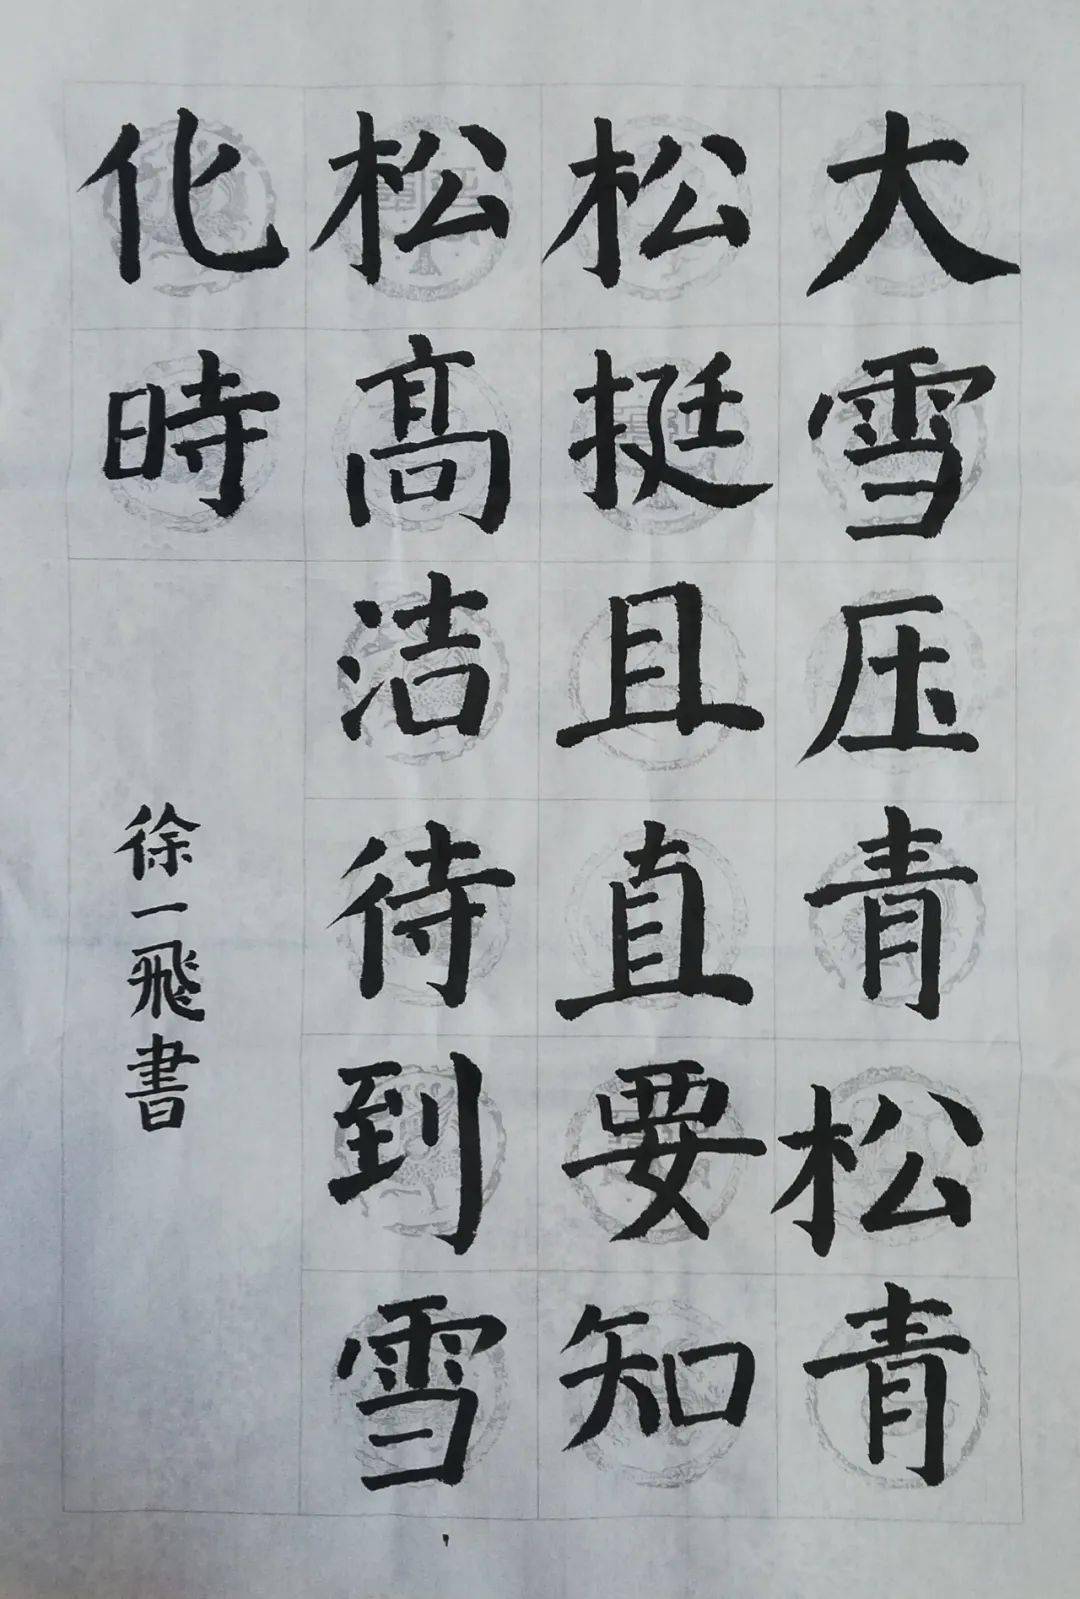 大雪压青松青
松挺且直要知
松高洁待到雪
化時
徐一飛書